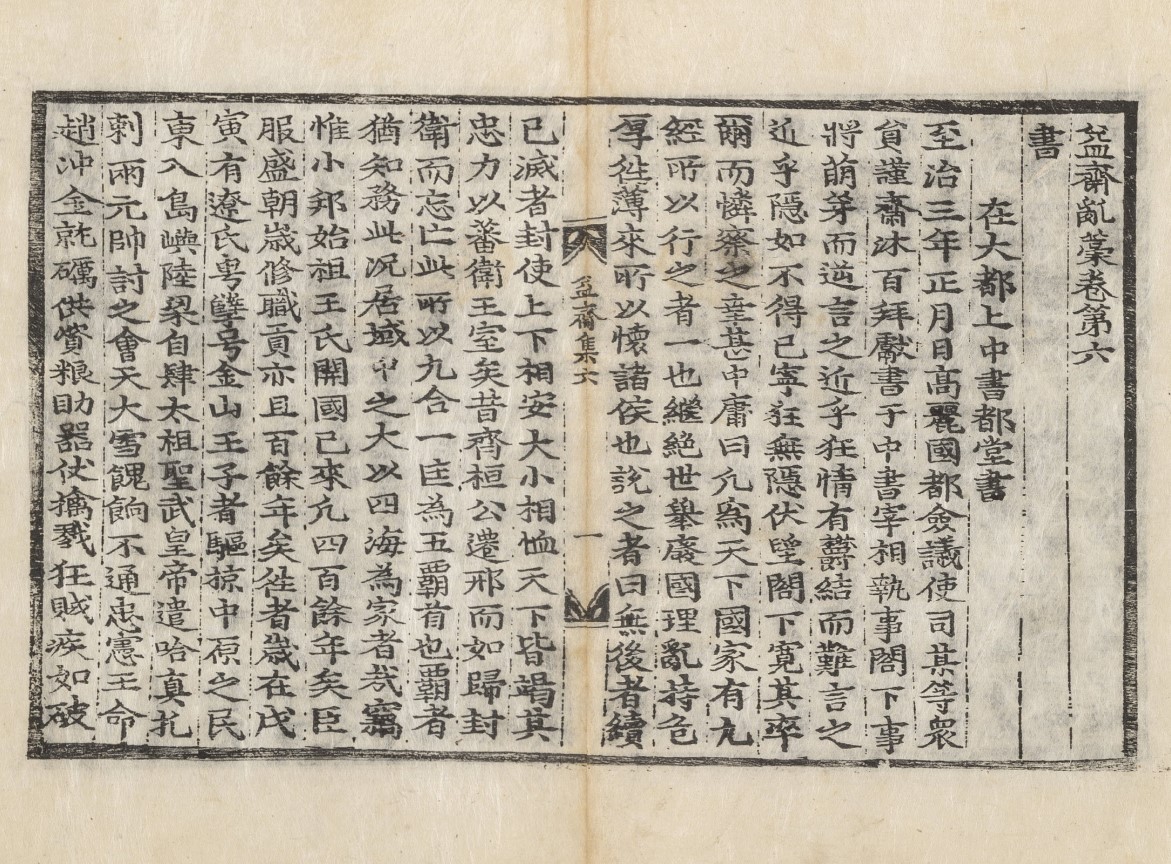 益齋亂藁卷第六
書
在大都上中書都堂書
至治三年正月日高麗國都僉議使司某等衆
貟謹齋沐百拜獻書于中書宰相執事閤下事
將萌芽而逆言之近乎狂情有欝結而難言之
近乎隠如不得已寧狂無隠伏望閤下寛其率
爾而憐察之幸甚中庸曰凢爲天下國家有九
經所以行之者一也繼絶世舉廢國理亂持危
厚徃薄來所以懷諸侯也說之者曰無後者續
益齋集六
一
已滅者封使上下相安大小相恤天下皆竭其
忠力以蕃衛王室矣昔齊桓公遷邢而如歸封
衛而忘亡此所以九合一匡為五覇首也覇者
猶知務此况居域中之大以四海為家者㢤竊
惟小邦始祖王氏開國已來凢四百餘年矣臣
服盛朝歳修職貢亦且百餘年矣徃者歳在戊
寅有遼氏㝵孽号金山王子者驅掠中原之民
東入島嶼陸梁自肆太祖聖武皇帝遣哈真扎
剌兩元帥討之會天大雪餽餉不通忠憲王命
趙冲金就礪供資粮助器仗擒戮狂賊疾如破